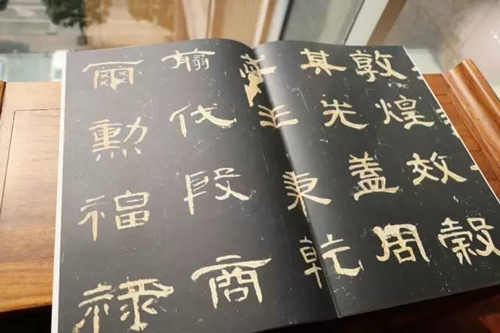 敦煌效穀
其先蓋周
王秉乾
翦伐殷商
爾勳福祿